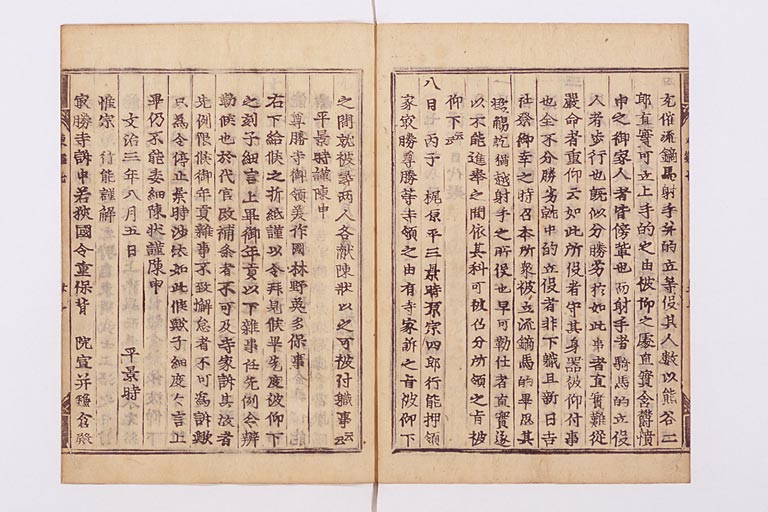 充催流鏑馬射手并的立等役其人數以熊谷二
郎直實可立上手的之由被仰之處直實含欝憤
申之御家人者皆傍輩也而射手者騎馬的立役
人者歩行也既似分勝劣於如此事者直實難從
嚴命者重仰云如此所役者守其身器被仰付事
也全不分勝劣就中的立役者非下職且新日吉
社祭御幸之時召本所衆被立流鏑馬的畢思其
訖猶越射手之所役也早可勤仕者直實遂
以不能進奉之間依其科可被召分所領之旨被
仰下云云
八日丙子梶原平三景時原宗四郎行能押領
寂勝尊勝等寺領之由有寺家訴之旨被仰下
之間就被尋兩人各献陳状以之可被付職事云云
平景時謹陳申
尊勝寺御領美作國林野英多保事
右下給候之折紙謹以令拜見候畢先度被仰下
之刻子細言上畢御年貢以下雜事任先例令辨
勤候也於代官改補条者不可及寺家訴其故者
先例限候御年貢雜事不致懈怠者不可爲訴歟
只爲令停止景時沙汰如此候歟子細度々言上
畢仍不能委細陳状謹陳申
文治三年八月五日 平景時
惟宗行能謹解
寂勝寺訴申若狹國今重保背 院宣并鎌倉殿